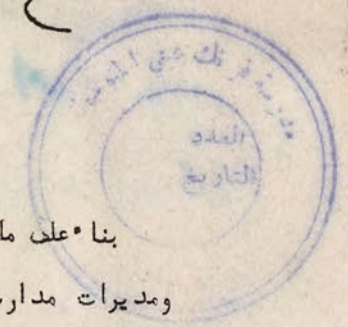 مدرسة فرنك عيني
العدد
التاريخ
بناء على ما
ومديرات مدار